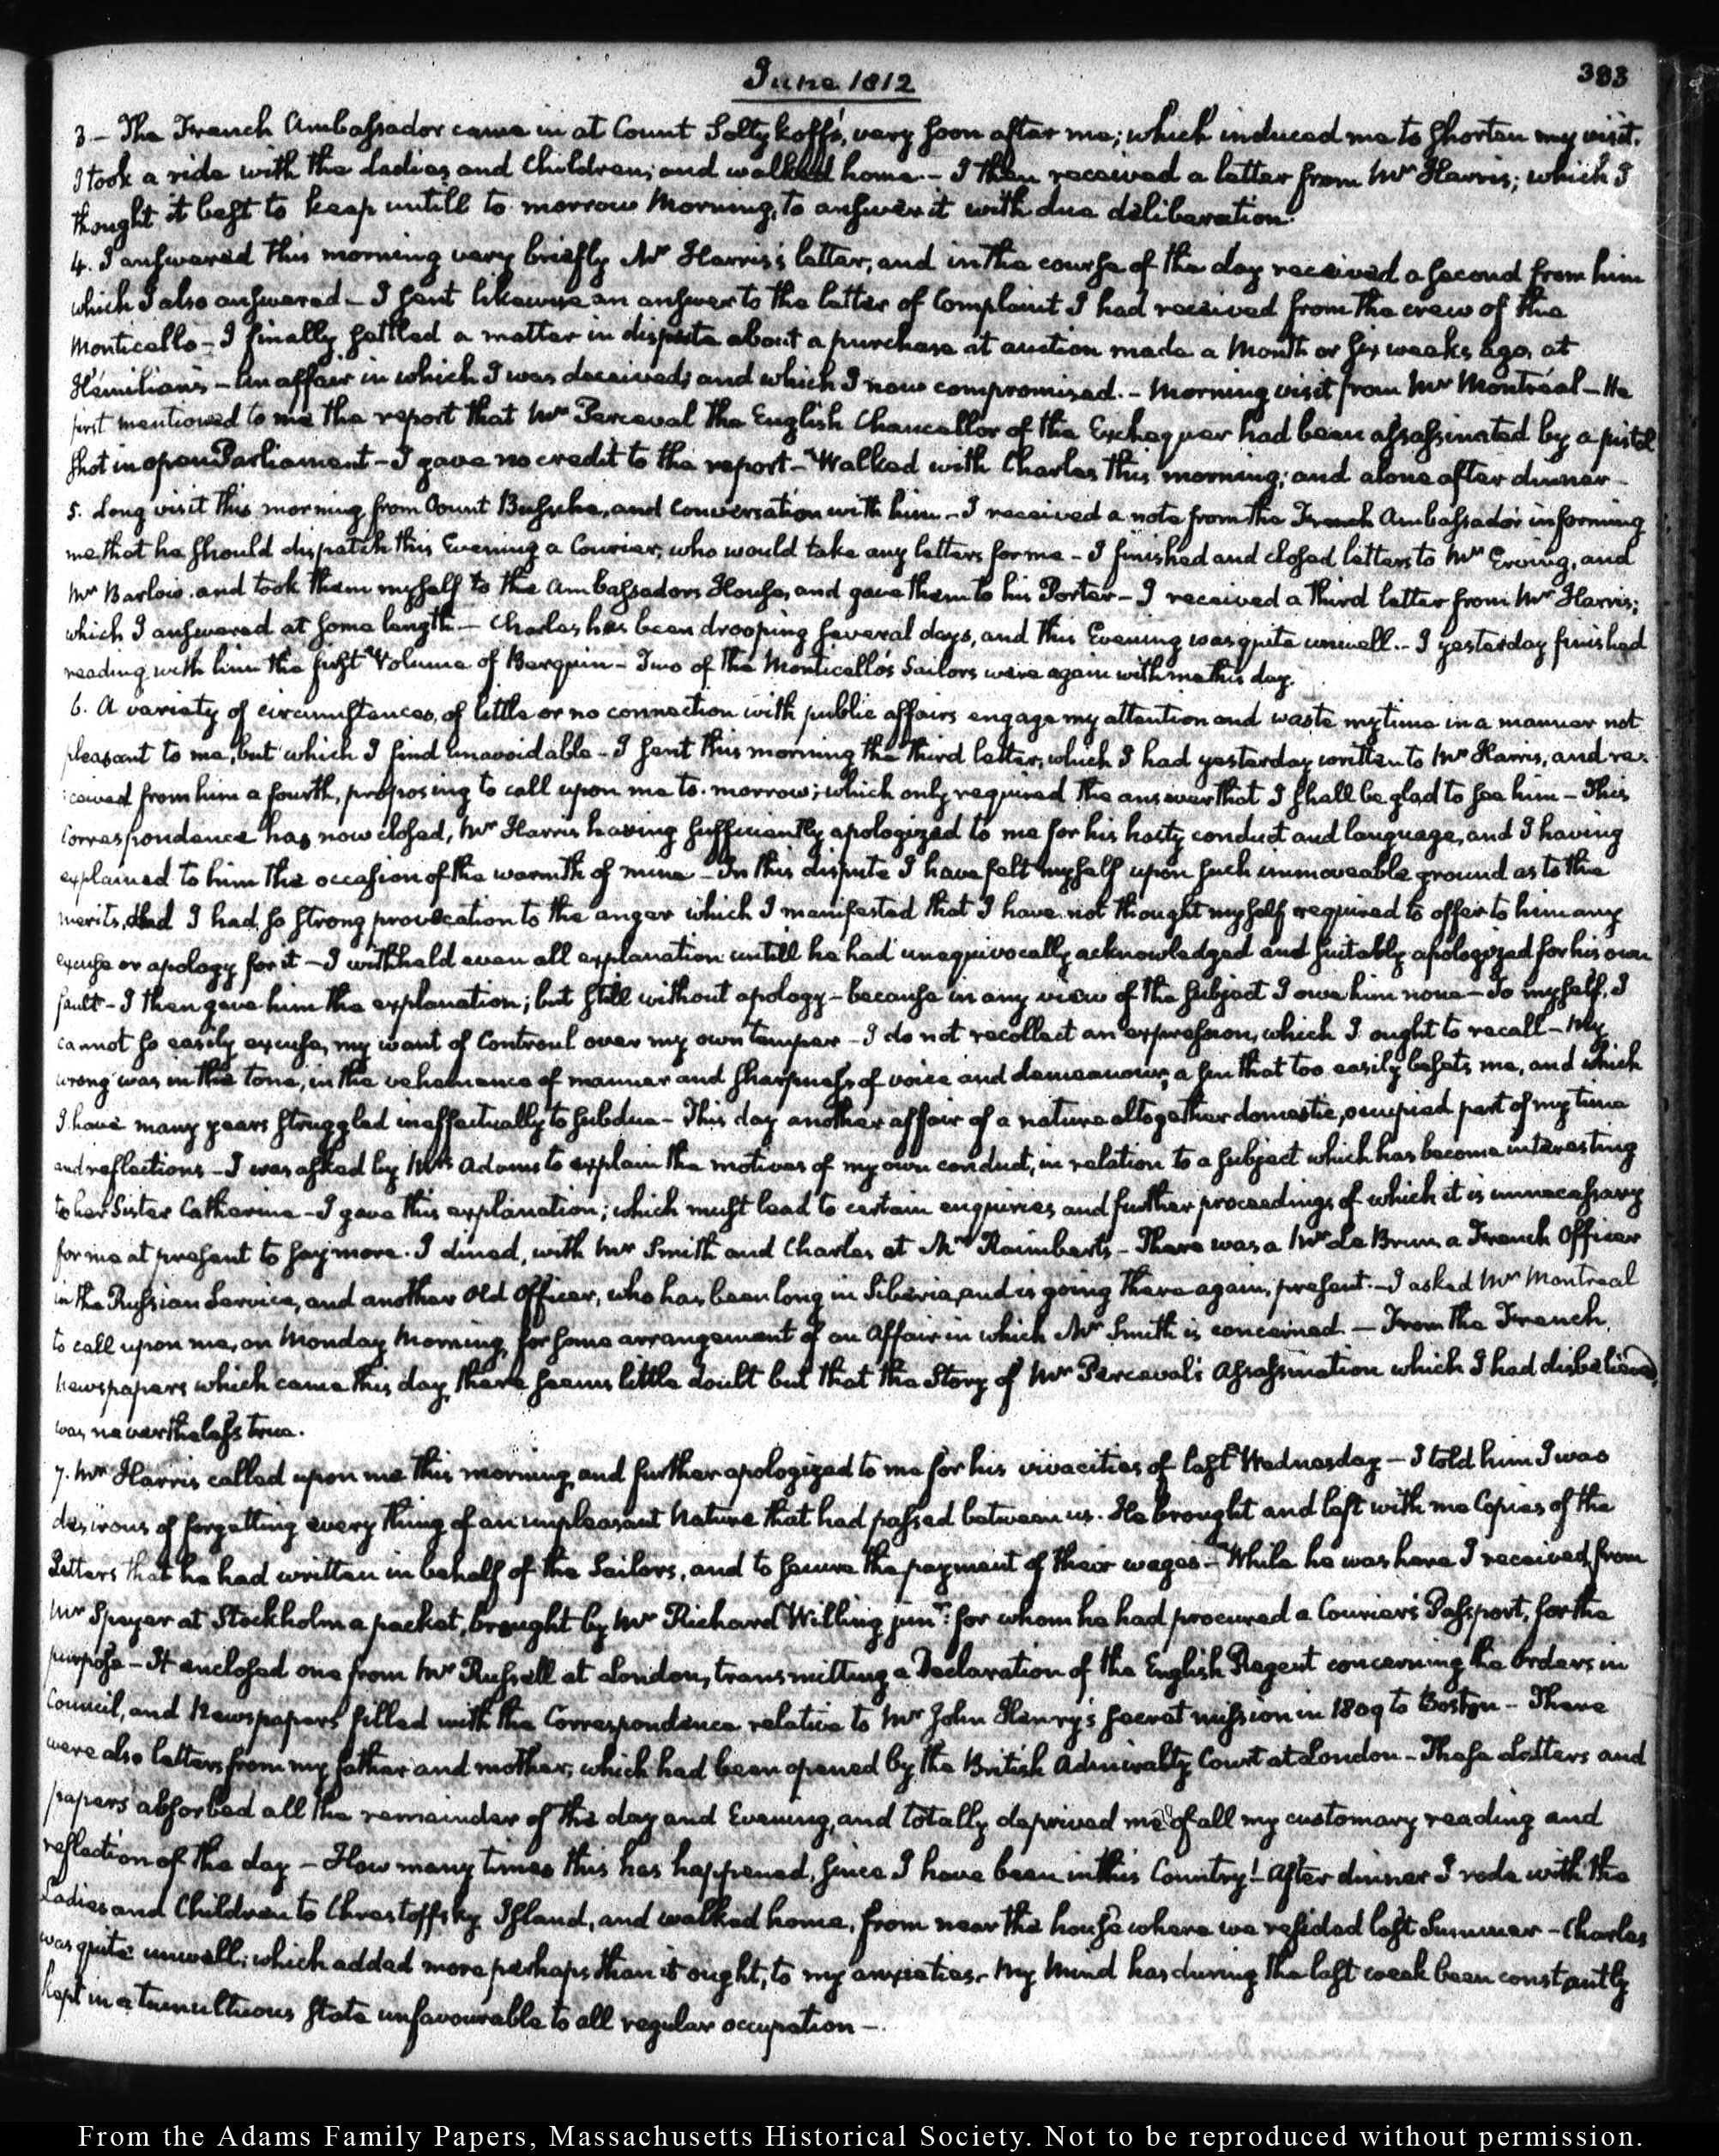 June 1812
383
3 – The French Ambassador came in at Count Soltykoff's, very soon after me; which induced me to shorten my visit.
I took a ride with the Ladies and Children; and walked home – I then received a letter from Mr Harris; which I
thought it best to keep untill to-morrow Morning, to answer it with due deliberation.
4. I answered this morning very briefly Mr Harris's letter; and in the course of the day received a second from him
which I also answered – I sent likewise an answer to the letter of Complaint I had received from the crew of the
Monticello – I finally settled a matter in dispute about a purchase at auction made a Month or six weeks ago, at
Hémilian's – An affair in which I was deceived; and which I now compromised. – Morning visit from Mr Montréal – He
first mentioned to me the report that Mr Perceval the English Chancellor of the Exchequer had been assassinated by a pistol
shot in open Parliament – I gave no credit to the report – Walked with Charles this morning; and alone after dinner –
5. Long visit this morning from Count Bussche, and conversation with him – I received a note from the French Ambassador informing
me that he should dispatch this Evening a Courier, who would take any letters for me – I finished and closed letters to Mr Erving, and
Mr Barlow. and took them myself to the Ambassadors House, and gave them to his Porter – I received a third letter from Mr Harris;
which I answered at some length – Charles has been drooping several days, and this Evening was quite unwell. – I yesterday finished
reading with him the first Volume of Berquin – Two of the Monticello's Sailors were again with me this day.
6. A variety of circumstances, of little or no connection with public affairs engage my attention and waste my time in a manner not
pleasant to me, but which I find unavoidable – I sent this morning the third letter, which I had yesterday written to Mr Harris, and re-
ceived from him a fourth, proposing to call upon me to-morrow; which only required the answer that I shall be glad to see him – This
Correspondence has now closed, Mr Harris having sufficiently apologized to me for his hasty conduct and language, and I having
explained to him the occasion of the warmth of mine – In this dispute I have felt myself upon such immoveable ground as to the
merits, and I had so strong provocation to the anger which I manifested that I have not thought myself required to offer to him any
excuse or apology for it – I withheld even all explanation untill he had unequivocally acknowledged and suitably apologized for his own
fault – I then gave him the explanation; but still without apology – because in any view of the subject I owe him none – To myself, I
cannot so easily excuse, my want of Controul over my own temper – I do not recollect an expression, which I ought to recall – My
wrong was in the tone, in the vehemence of manner and sharpness of voice and demeanour; a sin that too easily besets me, and which
I have many years struggled ineffectually to subdue – This day another affair of a nature altogether domestic, occupied part of my time
and reflections – I was asked by Mrs Adams to explain the motives of my own conduct, in relation to a subject which has become interesting
to her Sister Catherine – I gave this explanation; which must lead to certain enquiries and further proceedings of which it is unnecessary
for me at present to say more. I dined, with Mr Smith and Charles at Mr Raimbert's – There was a Mr Le Brun a French Officer
in the Russian Service, and another Old Officer, who has been long in Siberia, and is going there again, present. – I asked Mr Montreal
to call upon me, on Monday Morning, for some arrangement of an Affair in which Mr Smith is concerned. – From the French
Newspapers which came this day, there seems little doubt but that the Story of Mr Perceval's Assassination which I had disbelieved,
was nevertheless true.
7. Mr Harris called upon me this morning, and further apologized to me for his vivacities of last Wednesday – I told him I was
desirous of forgetting every thing of an unpleasant Nature that had passed between us. He brought and left with me Copies of the
Letters that he had written in behalf of the Sailors, and to secure the payment of their wages – While he was here I received from
Mr Speyer at Stockholm a packet, brought by Mr Richard Willing junr: for whom he had procured a Courier's Passport, for the
purpose – It enclosed one from Mr Russell at London, transmitting a Declaration of the English Regent concerning the Orders in
Council, and Newspapers filled with the Correspondence relative to Mr John Henry's secret mission in 1809 to Boston – There
were also letters from my father and mother; which had been opened by the British Admiralty Court at London – These Letters and
papers absorbed all the remainder of the day and Evening, and totally deprived me of all my customary reading and
reflection of the day – How many times this has happened, since I have been in this Country! After dinner I rode with the
Ladies and Children to Chrestoffsky Island, and walked home, from near the house where we resided last Summer – Charles
was quite unwell; which added more perhaps than it ought, to my anxieties. My Mind has during the last week been constantly
kept in a tumultuous state unfavourable to all regular occupation –
From the Adams Family Papers, Massachusetts Historical Society. Not to be reproduced without permission.